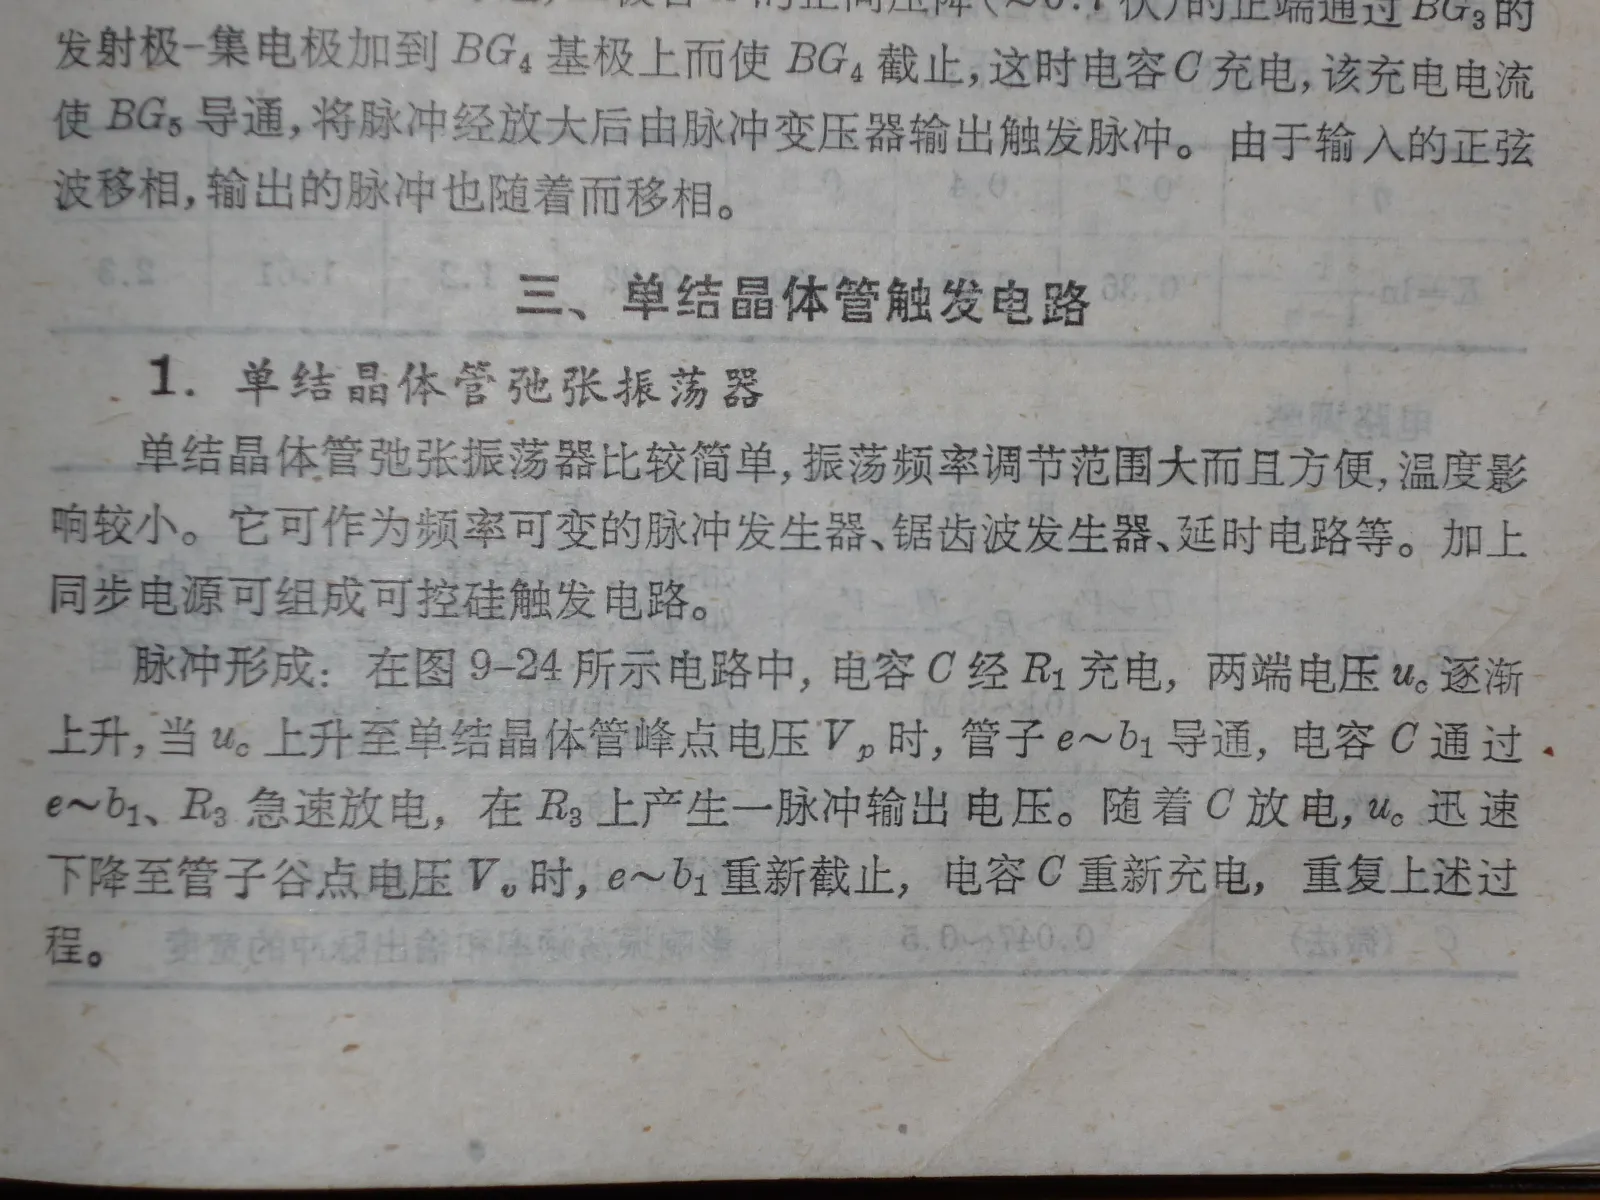 的正向压降(~0.7伏)的正端通过BG₃的
发射极-集电极加到BG₄基极上而使BG₄截止,这时电容C充电,该充电电流
使BG₅导通,将脉冲经放大后由脉冲变压器输出触发脉冲。由于输入的正弦
波移相,输出的脉冲也随着而移相。
三、单结晶体管触发电路
1. 单结晶体管弛张振荡器
单结晶体管弛张振荡器比较简单,振荡频率调节范围大而且方便,温度影
响较小。它可作为频率可变的脉冲发生器、锯齿波发生器、延时电路等。加上
同步电源可组成可控硅触发电路。
脉冲形成:在图9-24所示电路中,电容C经R₁充电,两端电压u꜀逐渐
上升,当u꜀上升至单结晶体管峰点电压Vₚ时,管子e~b₁导通,电容C通过
e~b₁、R₃急速放电,在R₃上产生一脉冲输出电压。随着C放电,u꜀迅速
下降至管子谷点电压Vᵥ时,e~b₁重新截止,电容C重新充电,重复上述过
程。